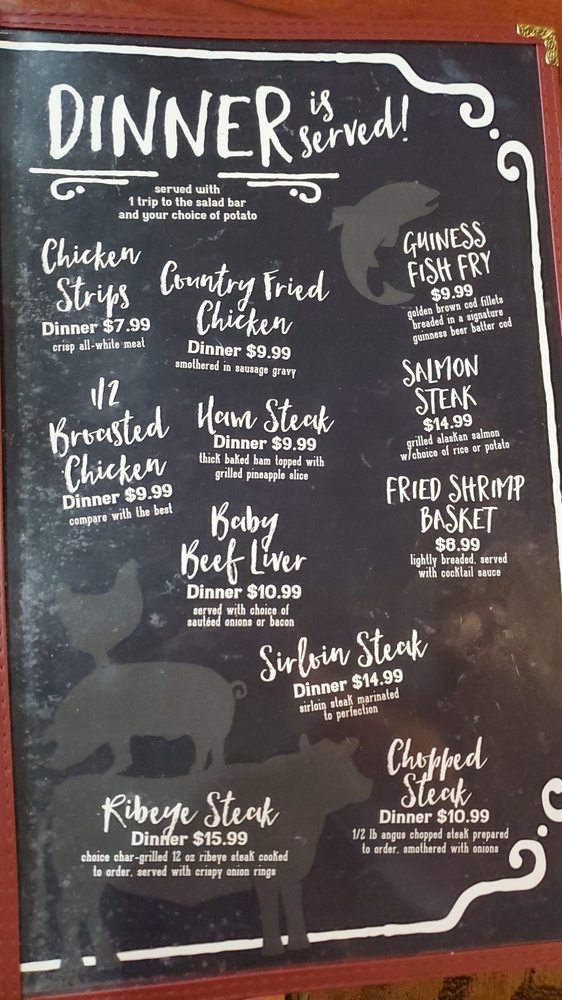 DINNER is served!
served with
1 trip to the salad bar
and your choice of potato
Chicken
Strips
Dinner $7.99
crisp all-white meat
Country Fried
Chicken
Dinner $9.99
smothered in sausage gravy
GUINESS
FISH FRY
$9.99
golden brown cod fillets
breaded in a signature
guinness beer batter cod
1/2
Broasted
Chicken
Dinner $9.99
compare with the best
Ham Steak
Dinner $9.99
thick baked ham topped with
grilled pineapple slice
SALMON
STEAK
$14.99
grilled alaskan salmon
w/choice of rice or potato
Baby
Beef Liver
Dinner $10.99
served with choice of
sautéed onions or bacon
FRIED SHRIMP
BASKET
$8.99
lightly breaded, served
with cocktail sauce
Sirloin Steak
Dinner $14.99
sirloin steak marinated
to perfection
Ribeye Steak
Dinner $15.99
choice char-grilled 12 oz ribeye steak cooked
to order, served with crispy onion rings
Chopped
Steak
Dinner $10.99
1/2 lb angus chopped steak prepared
to order, smothered with onions